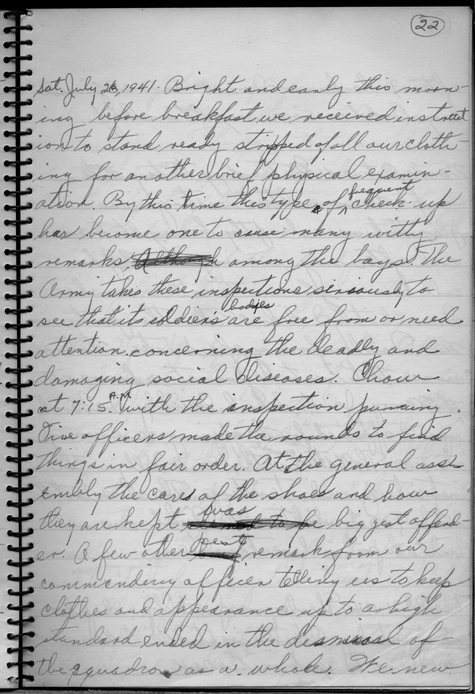 22
Sat. July 26, 1941. Bright and early this morn-
ing before breakfast we received instruct
ion to stand ready stripped of all our cloth-
ing for another brief physical examin-
ation. By this time this type of frequent check-up
has become one to cause many witty
remarks among the boys. The
Army takes these inspections seriously to
see that its soldiers bodies are free from or need
attention concerning the deadly and
damaging social diseases. Chow
at 7:15 A.M. with the inspection
Five officers made the rounds to find
things in fair order. At the general ass-
embly the care of the shoes and how
they are kept was biggest offend
er. A few other remark from our
commending officer telling us to keep
clothes and appearance up to a high
standard ended in the dismissal of
the squadron as a whole. We new